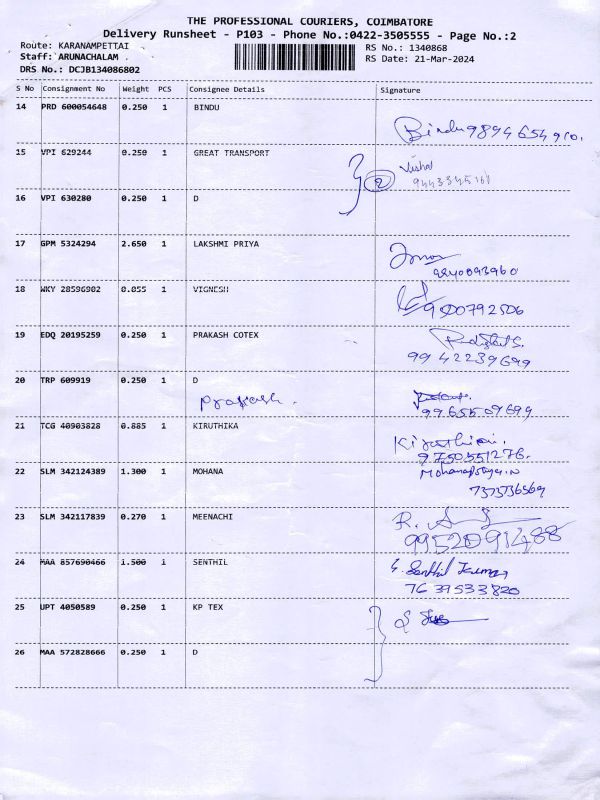 THE PROFESSIONAL COURIERS, COIMBATORE
Delivery Runsheet - P103 - Phone No.:0422-3505555 - Page No.:2
Route: KARANAMPETTAI RS No.: 1340868
Staff: ARUNACHALAM . RS Date: 21-Mar-2024
DRS No.: DCJB134086802
S No Consignment No Weight PCS Consignee Details Signature
14 PRD 600054648 0.250 1 BINDU
Bindu
15 VPI 629244 0.250 1 GREAT TRANSPORT
Vishal
2
9443345161
16 VPI 630280 0.250 1 D
17 GPM 5324294 2.650 1 LAKSHMI PRIYA
9840093960
18 WKY 28596902 0.055 1 VIGNESH
9500792506
19 EDQ 20195259 0.250 1 PRAKASH COTEX
9942239699
20 TRP 609919 0.250 1 D
Prakash.
9965509699
21 TCG 40903828 0.885 1 KIRUTHIKA
9750551276.
22 SLM 342124389 1.300 1 MOHANA
7373736569
23 SLM 342117839 0.270 1 MEENACHI
9952091488
24 MAA 857690466 1.500 1 SENTHIL
S. Senthil Kumar
7639533820
25 UPT 4050589 0.250 1 KP TEX
26 MAA 572828666 0.250 1 D